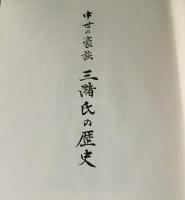 中世の豪族
三潴氏の歴史